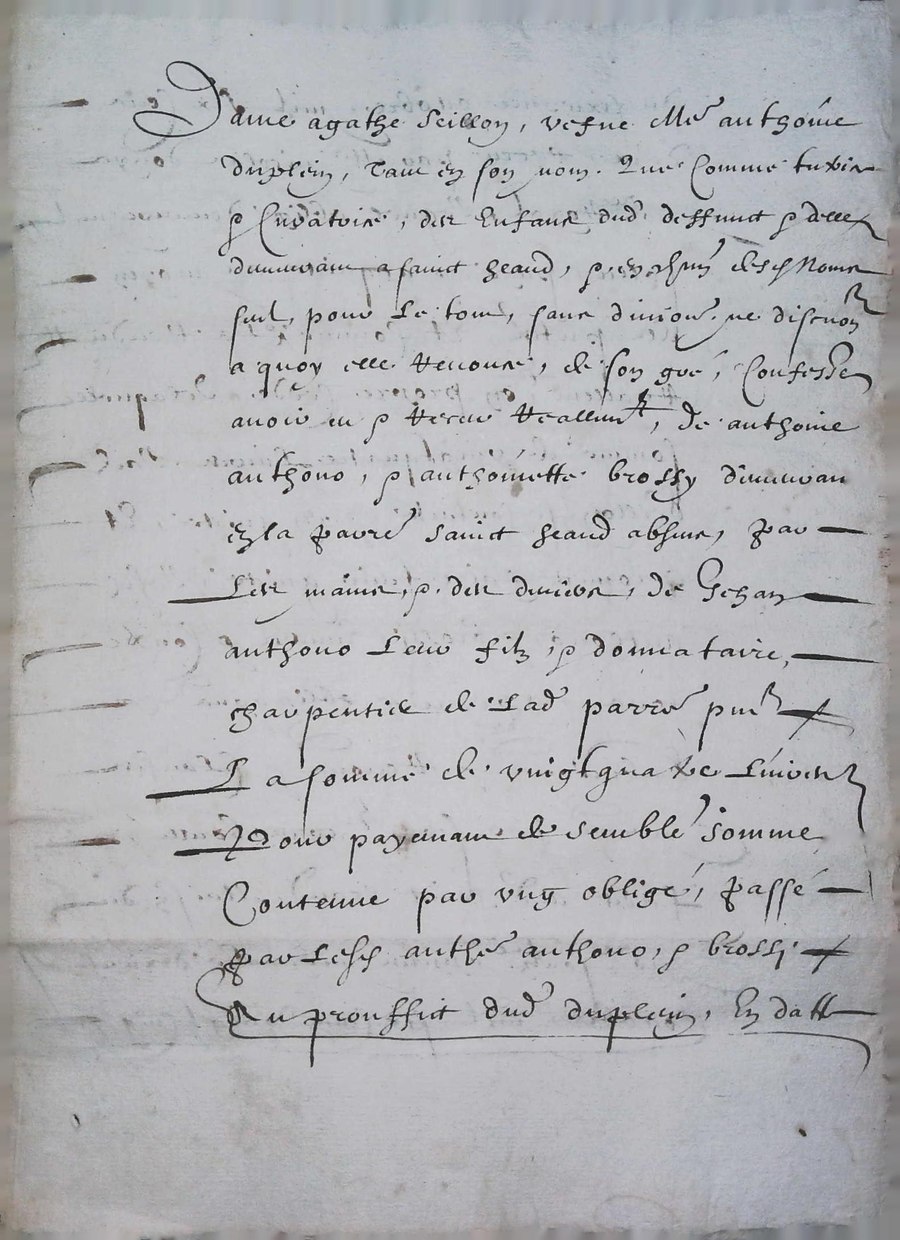 Dame agathe Seillon, vefue Me anthoine
duplein, Tant en son nom. Que Comme tutrix
& Curatrice, des Enfans dud deffunct & delle
demeurant a sainct heand, & en chun desd Noms
seul, pour Le tout, sans division ne discuon
a quoy elle Renonce, de son gré, Confesse
avoir eu & Receu Reallemt, de anthoine
anthono, & anthoinette brossy demeuran
en la parre Sainct heand absens, par
Les mains, & des deniers, de Jehan
anthono Leur filz, & donnataire,
charpentier de Lad parre pnt
La somme de vingtquatre Livres
Pour payement de semble somme
Contenue par ung obligé, passé
par Lesd anthe anthono, & brossi
Au prouffict dud duplein, En datte